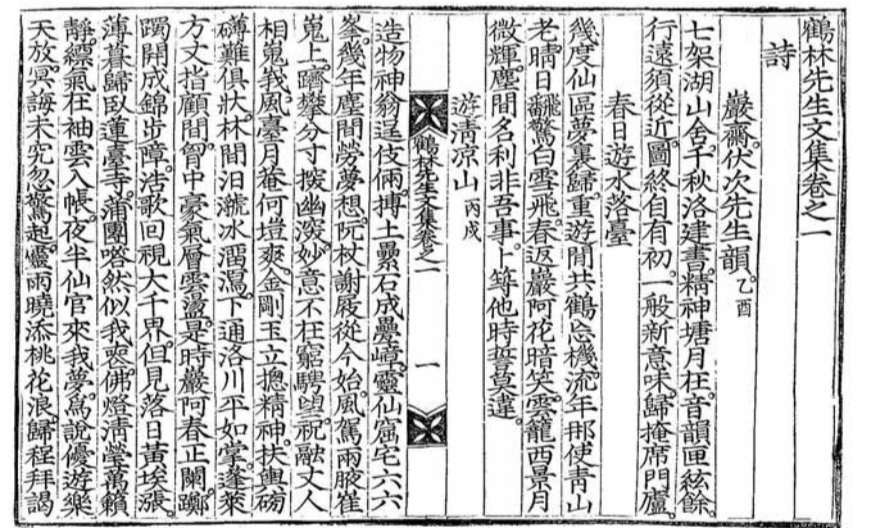 鶴林先生文集卷之一
詩
巖齋伏次先生韻 乙酉
七架湖山舍千秋洛建書精神塘月在音韻匣絃餘
行遠須從近圖終自有初一般新意味歸掩席門廬
春日遊水落臺
幾度仙區夢裏歸重遊閒共鶴忘機流年那使靑山
老晴日飜驚白雪飛春返巖阿花暗笑雲籠西景月
微輝塵間名利非吾事卜築他時誓莫違
遊淸凉山 丙戌
鶴林先生文集卷之一 一
造物神翁逞伎倆摶土纍石成疊嶂靈仙窟宅六六
峯幾年塵間勞夢想阮杖謝屐從今始風駕兩腋崔
嵬上躋攀分寸搜幽深妙意不在窮騁望祝融丈人
相嵬峩風臺月菴何塏爽金剛玉立摠精神扶輿磅
礴難俱狀林間汨㶁氷溜瀉下通洛川平如掌蓬萊
方丈指顧間胷中豪氣層雲盪是時巖阿春正闌躑
躅開成錦步障浩歌回視大千界但見落日黃埃漲
薄暮歸臥蓮臺寺蒲團嗒然似我喪佛燈淸瑩萬籟
靜縹氣在袖雲入帳夜半仙官來我夢爲說優遊樂
天放冥誨未究忽驚起靈雨曉添桃花浪歸程拜謁